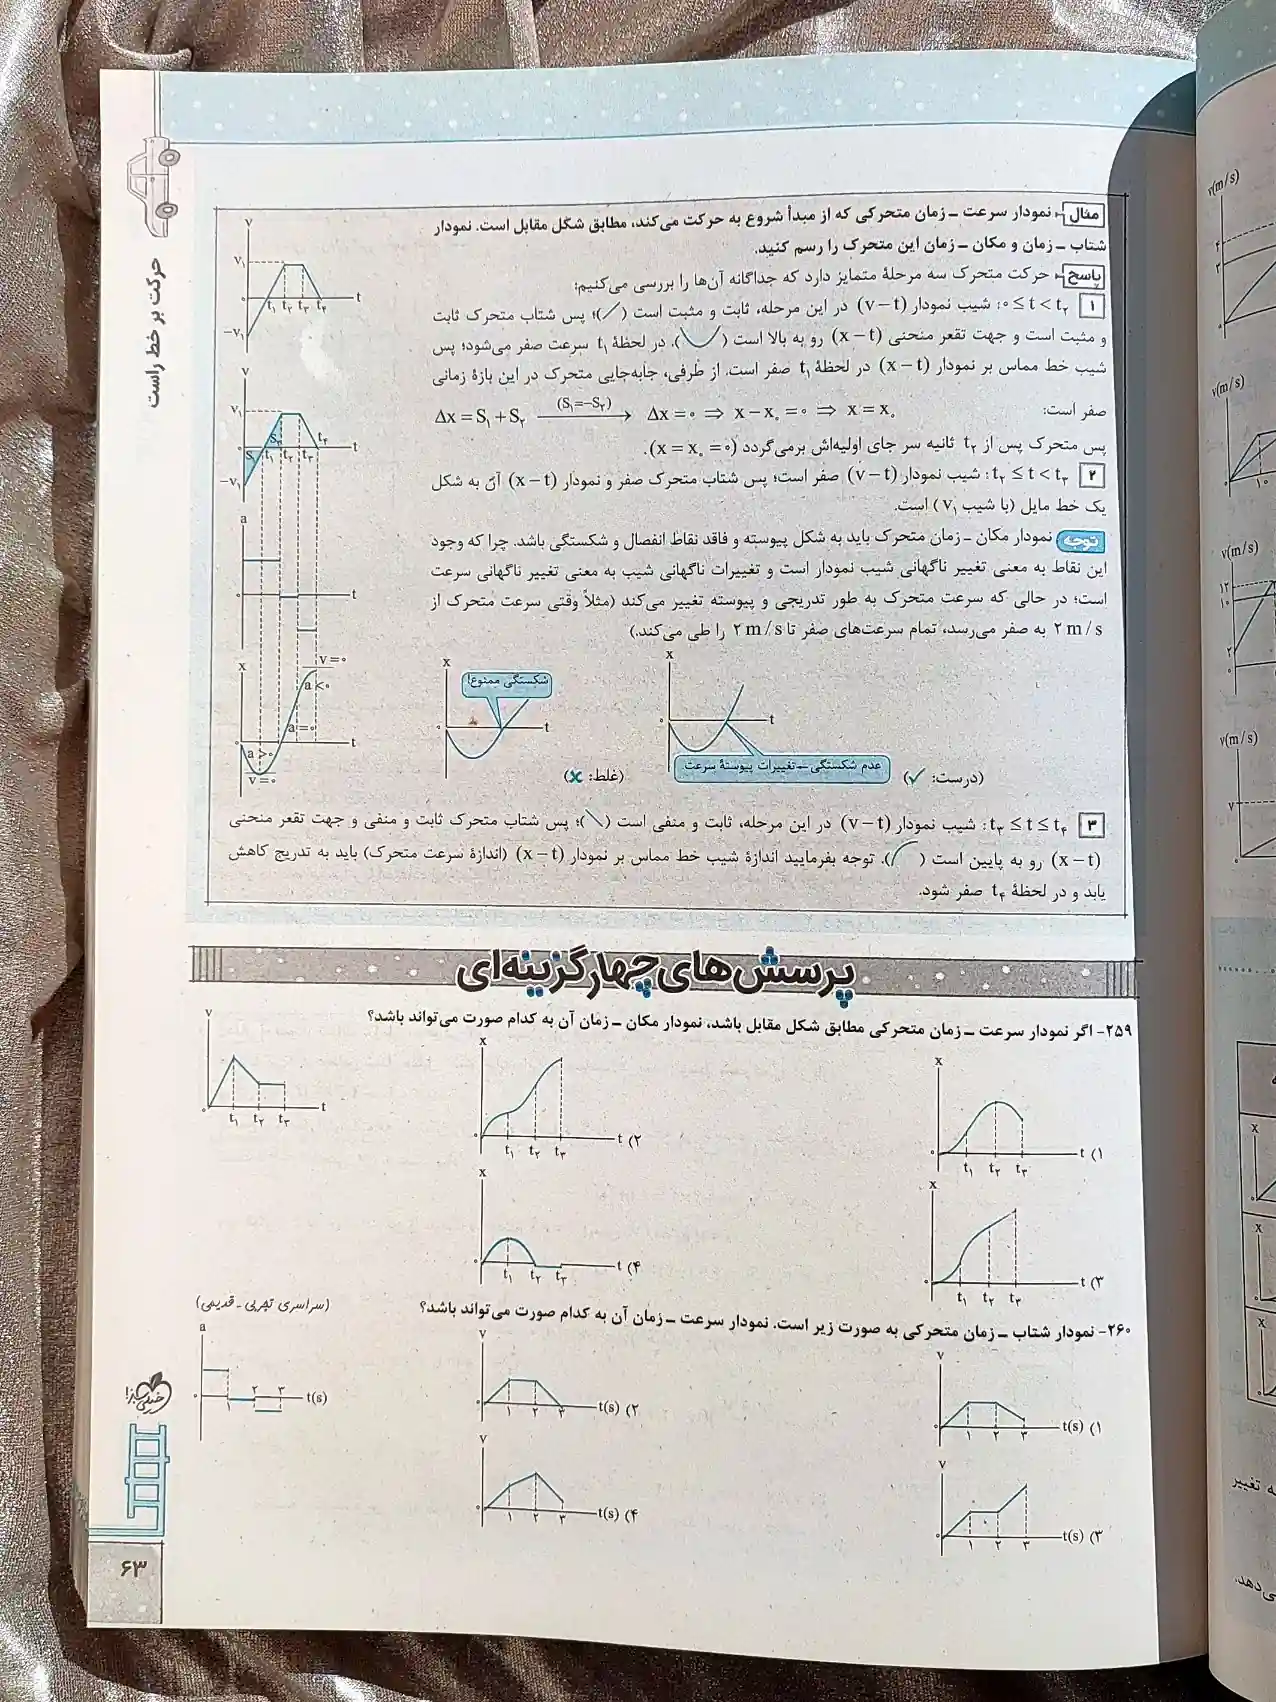 حرکت بر خط راست
مثال: نمودار سرعت ـ زمان متحرکی که از مبدأ شروع به حرکت می‌کند، مطابق شکل مقابل است. نمودار
شتاب ـ زمان و مکان ـ زمان این متحرک را رسم کنید.
پاسخ: حرکت متحرک سه مرحلهٔ متمایز دارد که جداگانه آن‌ها را بررسی می‌کنیم:
۱ ۰ ≤ t < t₂: شیب نمودار (v−t) در این مرحله، ثابت و مثبت است (/)؛ پس شتاب متحرک ثابت
و مثبت است و جهت تقعر منحنی (x−t) رو به بالا است (‿). در لحظهٔ t₁ سرعت صفر می‌شود؛ پس
شیب خط مماس بر نمودار (x−t) در لحظهٔ t₁ صفر است. از طرفی، جابه‌جایی متحرک در این بازهٔ زمانی
صفر است: Δx = S₁ + S₂ ⟶ (S₁=−S₂) Δx = ۰ ⇒ x − x₀ = ۰ ⇒ x = x₀
پس متحرک پس از t₂ ثانیه سر جای اولیه‌اش برمی‌گردد (x = x₀ = ۰).
۲ t₂ ≤ t < t₃: شیب نمودار (v−t) صفر است؛ پس شتاب متحرک صفر و نمودار (x−t) آن به شکل
یک خط مایل (با شیب v₁) است.
توجه نمودار مکان ـ زمان متحرک باید به شکل پیوسته و فاقد نقاط انفصال و شکستگی باشد. چرا که وجود
این نقاط به معنی تغییر ناگهانی شیب نمودار است و تغییرات ناگهانی شیب به معنی تغییر ناگهانی سرعت
است؛ در حالی که سرعت متحرک به طور تدریجی و پیوسته تغییر می‌کند (مثلاً وقتی سرعت متحرک از
۲ m/s به صفر می‌رسد، تمام سرعت‌های صفر تا ۲ m/s را طی می‌کند.)
شکستگی ممنوع!
عدم شکستگی ـ تغییرات پیوستهٔ سرعت
(درست: ✓)
(غلط: ✗)
v = ۰
a < ۰
a = ۰
a > ۰
v = ۰
۳ t₃ ≤ t ≤ t₄: شیب نمودار (v−t) در این مرحله، ثابت و منفی است (\)؛ پس شتاب متحرک ثابت و منفی و جهت تقعر منحنی
(x−t) رو به پایین است (⌒). توجه بفرمایید اندازهٔ شیب خط مماس بر نمودار (x−t) (اندازهٔ سرعت متحرک) باید به تدریج کاهش
یابد و در لحظهٔ t₄ صفر شود.
پرسش‌های چهارگزینه‌ای
۲۵۹- اگر نمودار سرعت ـ زمان متحرکی مطابق شکل مقابل باشد، نمودار مکان ـ زمان آن به کدام صورت می‌تواند باشد؟
v t t₁ t₂ t₃
۱) x t t₁ t₂ t₃
۲) x t t₁ t₂ t₃
۳) x t t₁ t₂ t₃
۴) x t t₁ t₂ t₃
۲۶۰- نمودار شتاب ـ زمان متحرکی به صورت زیر است. نمودار سرعت ـ زمان آن به کدام صورت می‌تواند باشد؟
(سراسری تجربی - قدیمی)
a t(s) ۱ ۲ ۳
۱) v t(s) ۱ ۲ ۳
۲) v t(s) ۱ ۲ ۳
۳) v t(s) ۱ ۲ ۳
۴) v t(s) ۱ ۲ ۳
خیلی سبز
۶۳
v(m/s)
v(m/s)
v(m/s)
v(m/s)